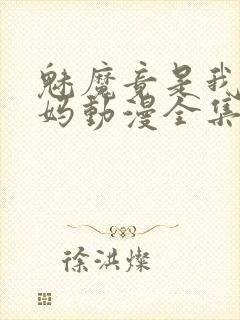 魅魔竟是我
妈動漫全集
徐洪燦